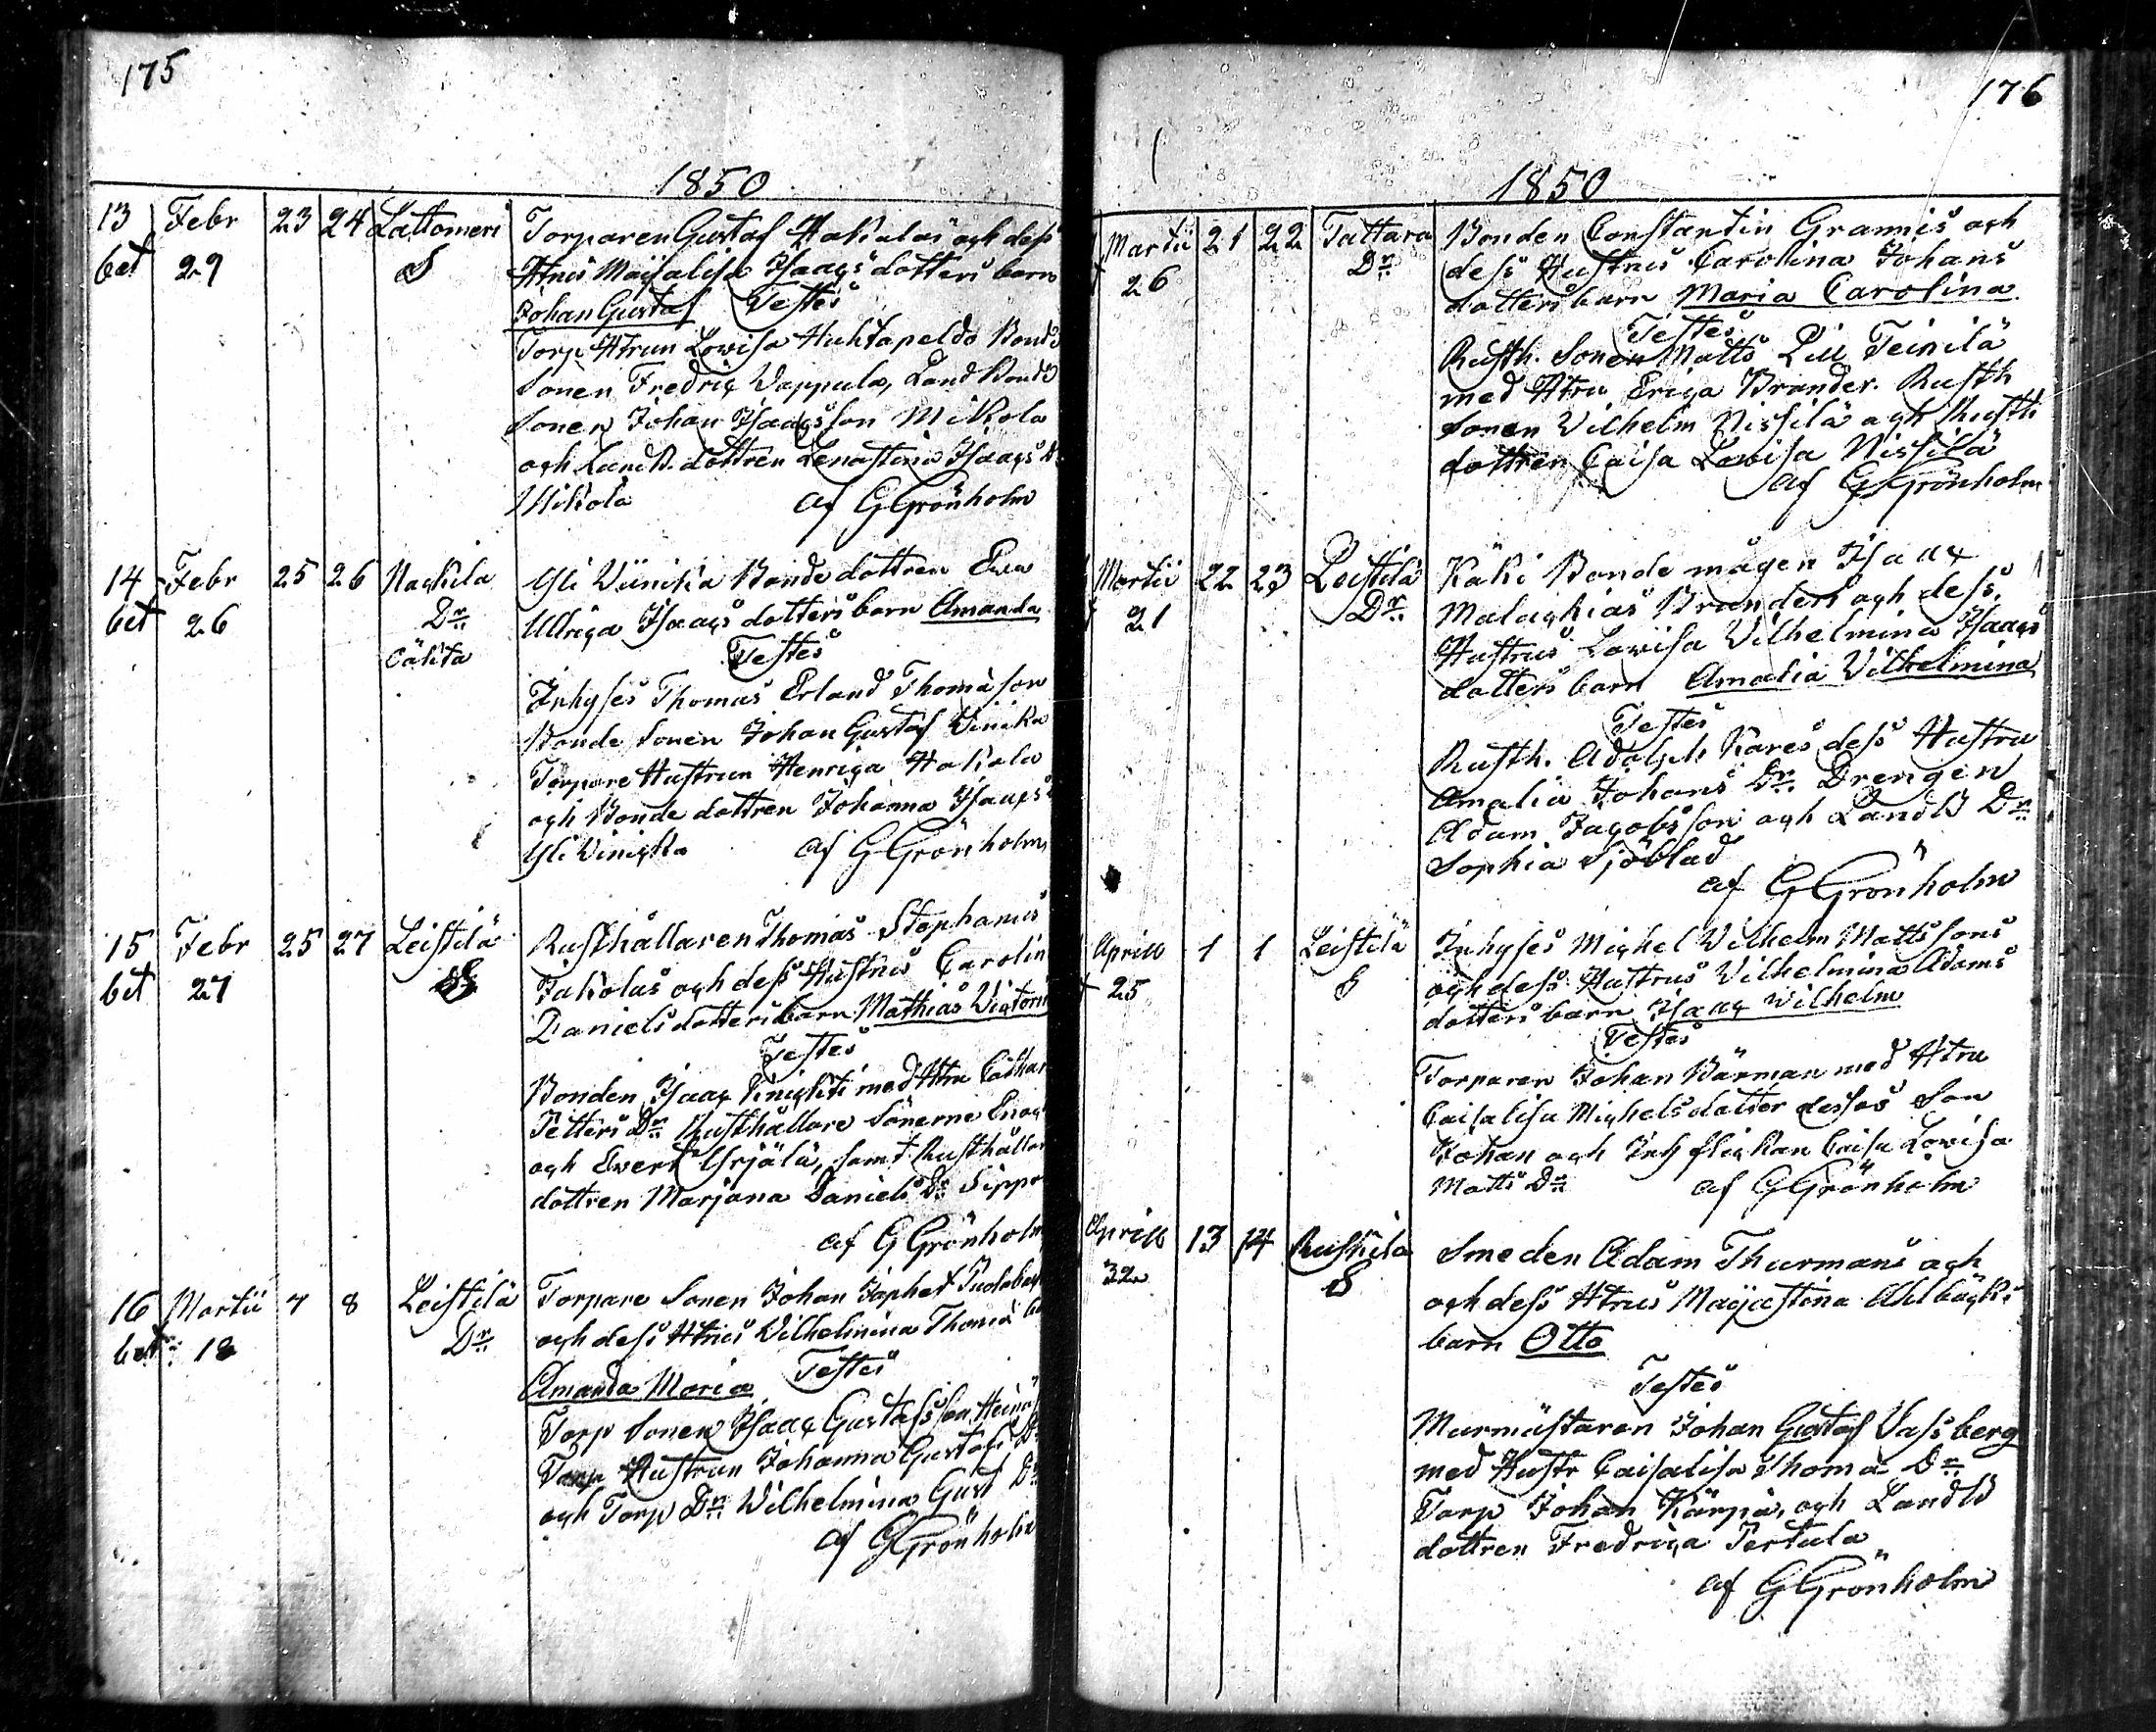 175
1850
13 Febr 23 24 Lattomeri Torparen Gustaf Hakalas och dess
bet 29 S Htrus Maijalisa Isaacs dotters barn
Johan Gustaf Testes
Torp Htrun Lovisa Huhtapeldo Bonde
Sonen Fredriq Vappula, Land Bonde
Sonen Johan Isaacsson Mikola
och LandB. dottren Lenastina Isaacs D
Mikola af G Grönholm
14 Febr 25 26 Nackila Yli Viinika Bonde dottren Ewa
bet 26 Dr Ulriqa Isaacs dotters barn Amanda
oäkta Testes
Inhyses Thomas Erland Thomason
Bonde Sonen Johan Gustaf Vinika
Torpare Hustrun Henriqa Hakala
och Bonde dottren Johanna Isaacs
Yli Vinikka af G Grönholm
15 Febr 25 27 Leistilä Rusthållaren Thomas Stephanus
bet 27 S Jakolas och dess Hustrus Carolin
Daniels dotters barn Mathias Victorin
Testes
Bonden Isaac Knichti med Htru Cathar
Petters Dr Rusthållare Sönerne Enoch
och Evert Yrjälä, samt Rusthållar
dottren Marjana Daniels Dr Sippo
af G Grönholm
16 Martii 7 8 Leistilä Torpare Sonen Johan Japhet
bet 18 Dr och dess Htrus Vilhelmina Thoma
Amanda Maria Testes
Torp Sonen Isaac Gustafsson
Torp Hustrun Johanna Gustafs Dr
och Torp Dr Wilhelmina Gust Dr
af G Grönholm
176
1850
Martii 21 22 Tattara Bonden Constantin Grannis och
26 Dr dess Hustrus Carolina Johans
dotters barn Maria Carolina
Testes
Rusth. Sonen Matts Teinilä
med Htru Eriqa Brander. Rusth
Sonen Vilhelm Nissilä och Rusth
dottren Caisa Lovisa Nissilä
af G Grönholm
Martii 22 23 Leistilä Käki Bonde mågen Isaac
21 Dr Malachias Branders och dess
Hustrus Lovisa Vilhelmina Isaacs
dotters barn Amalia Vilhelmina
Testes
Rusth. Adolph Kares dess Hustru
Amalia Johans Dr. Drengen
Adam Jacobsson och LandB Dr
Sophia Sjöblad
af G Grönholm
Aprill 1 1 Leistilä Inhyses Michel Vilhelm Mattssons
25 S och dess Hustrus Vilhelmina Adams
dotters barn Isaac Wilhelm
Testes
Torparen Johan Bärman med Htru
Caisalisa Michels dotter dessas Son
Johan och Inh flickan Caisa Lovisa
Matts Dr af G Grönholm
Aprill 13 14 Ruskila Smeden Adam Thurmans och
32 S och dess Htrus Majastina Ahlbäcks
barn Otto
Testes
Murmästaren Johan Gustaf Vassberg
med Hustr Caisalisa Thoma Dr
Torp Johan Kärpä, och LandB
dottren Fredriqa Pertula
af G Grönholm